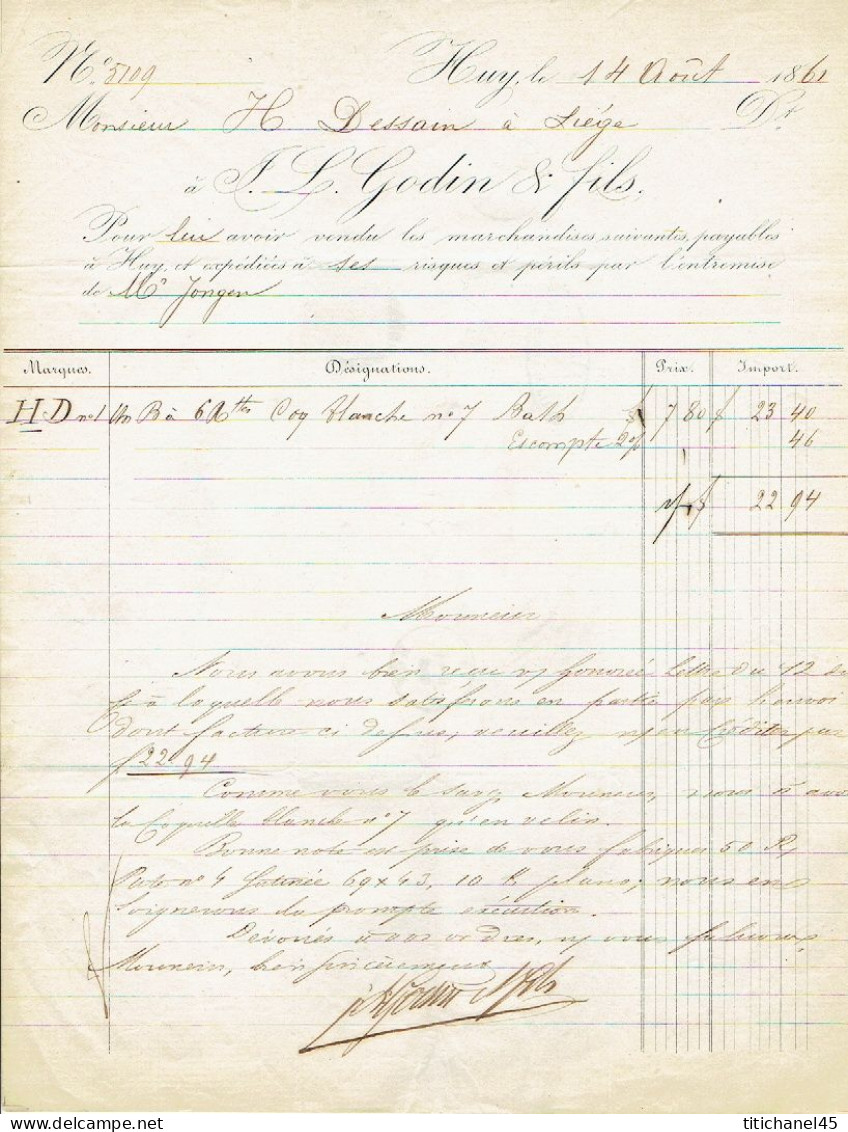 N° 5109 Huy, le 14 Août 1861
Monsieur H Dessain à Liége Dt
à J. L. Godin & fils,
Pour lui avoir vendu les marchandises suivantes, payables
à Huy, et expédiées à ses risques et périls par l'entremise
de Mr Jongen
Marques. Désignations. Prix. Import.
H-D n°1 Un B à 6 Coq blanche n°7 Bath 7 80 f 23 40
Escompte 2% 46
f 22 94
Monsieur
Nous avons bien reçu honorée lettre du 12
à laquelle nous satisfesons en partie par
dont facture ci dessus, veuillez créditer par
f 22 94
Comme vous le savez Monsieur, nous
la Coquille blanche n°7 qu'en velin.
Bonne note est prise de vous fabriquer 50 R
n° 4 69 x 43, 10 K plano; nous en
soignerons la prompte exécution.
Dévoués à vos ordres, vous saluons,
Monsieur, bien sincèrement
titichanel45